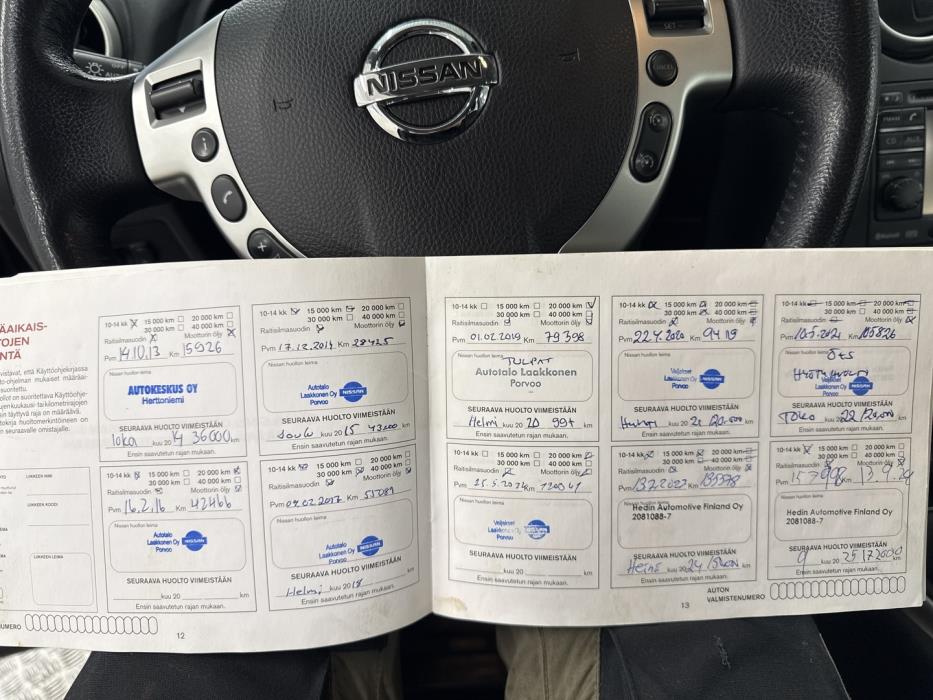 NISSAN
SET
CANCEL
CD AUX
10-14 kk 15 000 km 20 000 km
30 000 km 40 000 km
Raitisilmasuodin Moottorin öljy
Pvm 14.10.13 Km 15926
Nissan huollon leima
AUTOKESKUS OY
Herttoniemi
SEURAAVA HUOLTO VIIMEISTÄÄN
loka kuu 2014 36000 km
Ensin saavutetun rajan mukaan.
10-14 kk 15 000 km 20 000 km
30 000 km 40 000 km
Raitisilmasuodin Moottorin öljy
Pvm 17.12.2014 Km 28425
Nissan huollon leima
Autotalo
Laakkonen Oy
Porvoo
NISSAN
SEURAAVA HUOLTO VIIMEISTÄÄN
Joulu kuu 2015 km
Ensin saavutetun rajan mukaan.
10-14 kk 15 000 km 20 000 km
30 000 km 40 000 km
Raitisilmasuodin Moottorin öljy
Pvm 16.2.16 Km 42466
Nissan huollon leima
Autotalo
Laakkonen Oy
Porvoo
NISSAN
SEURAAVA HUOLTO VIIMEISTÄÄN
kuu 20 km
Ensin saavutetun rajan mukaan.
10-14 kk 15 000 km 20 000 km
30 000 km 40 000 km
Raitisilmasuodin Moottorin öljy
Pvm 07.02.2017 Km
Nissan huollon leima
Autotalo
Laakkonen Oy
Porvoo
NISSAN
SEURAAVA HUOLTO VIIMEISTÄÄN
Helmi kuu 2018 km
Ensin saavutetun rajan mukaan.
12
10-14 kk 15 000 km 20 000 km
30 000 km 40 000 km
Raitisilmasuodin Moottorin öljy
Pvm 01.02.2019 Km 79398
Nissan huollon leima
TULPAT
Autotalo Laakkonen
Porvoo
SEURAAVA HUOLTO VIIMEISTÄÄN
Helmi kuu 20 20 99t km
Ensin saavutetun rajan mukaan.
10-14 kk 15 000 km 20 000 km
30 000 km 40 000 km
Raitisilmasuodin Moottorin öljy
Pvm 22.4.2020 Km
Nissan huollon leima
Veljekset
Laakkonen Oy
Porvoo
NISSAN
SEURAAVA HUOLTO VIIMEISTÄÄN
kuu 2021 km
Ensin saavutetun rajan mukaan.
10-14 kk 15 000 km 20 000 km
30 000 km 40 000 km
Raitisilmasuodin Moottorin öljy
Pvm 10.5.2021 Km 105826
Nissan huollon leima
Laakkonen Oy
Porvoo
NISSAN
SEURAAVA HUOLTO VIIMEISTÄÄN
kuu 2022 km
Ensin saavutetun rajan mukaan.
10-14 kk 15 000 km 20 000 km
30 000 km 40 000 km
Raitisilmasuodin Moottorin öljy
Pvm Km
Nissan huollon leima
Veljekset
Laakkonen Oy
Porvoo
NISSAN
SEURAAVA HUOLTO VIIMEISTÄÄN
kuu 20 km
Ensin saavutetun rajan mukaan.
10-14 kk 15 000 km 20 000 km
30 000 km 40 000 km
Raitisilmasuodin Moottorin öljy
Pvm Km
Nissan huollon leima
Hedin Automotive Finland Oy
2081088-7
SEURAAVA HUOLTO VIIMEISTÄÄN
kuu 2024 km
Ensin saavutetun rajan mukaan.
10-14 kk 15 000 km 20 000 km
30 000 km 40 000 km
Raitisilmasuodin Moottorin öljy
Nissan huollon leima
Hedin Automotive Finland Oy
2081088-7
SEURAAVA HUOLTO VIIMEISTÄÄN
Ensin saavutetun rajan mukaan.
AUTON
VALMISTENUMERO
13